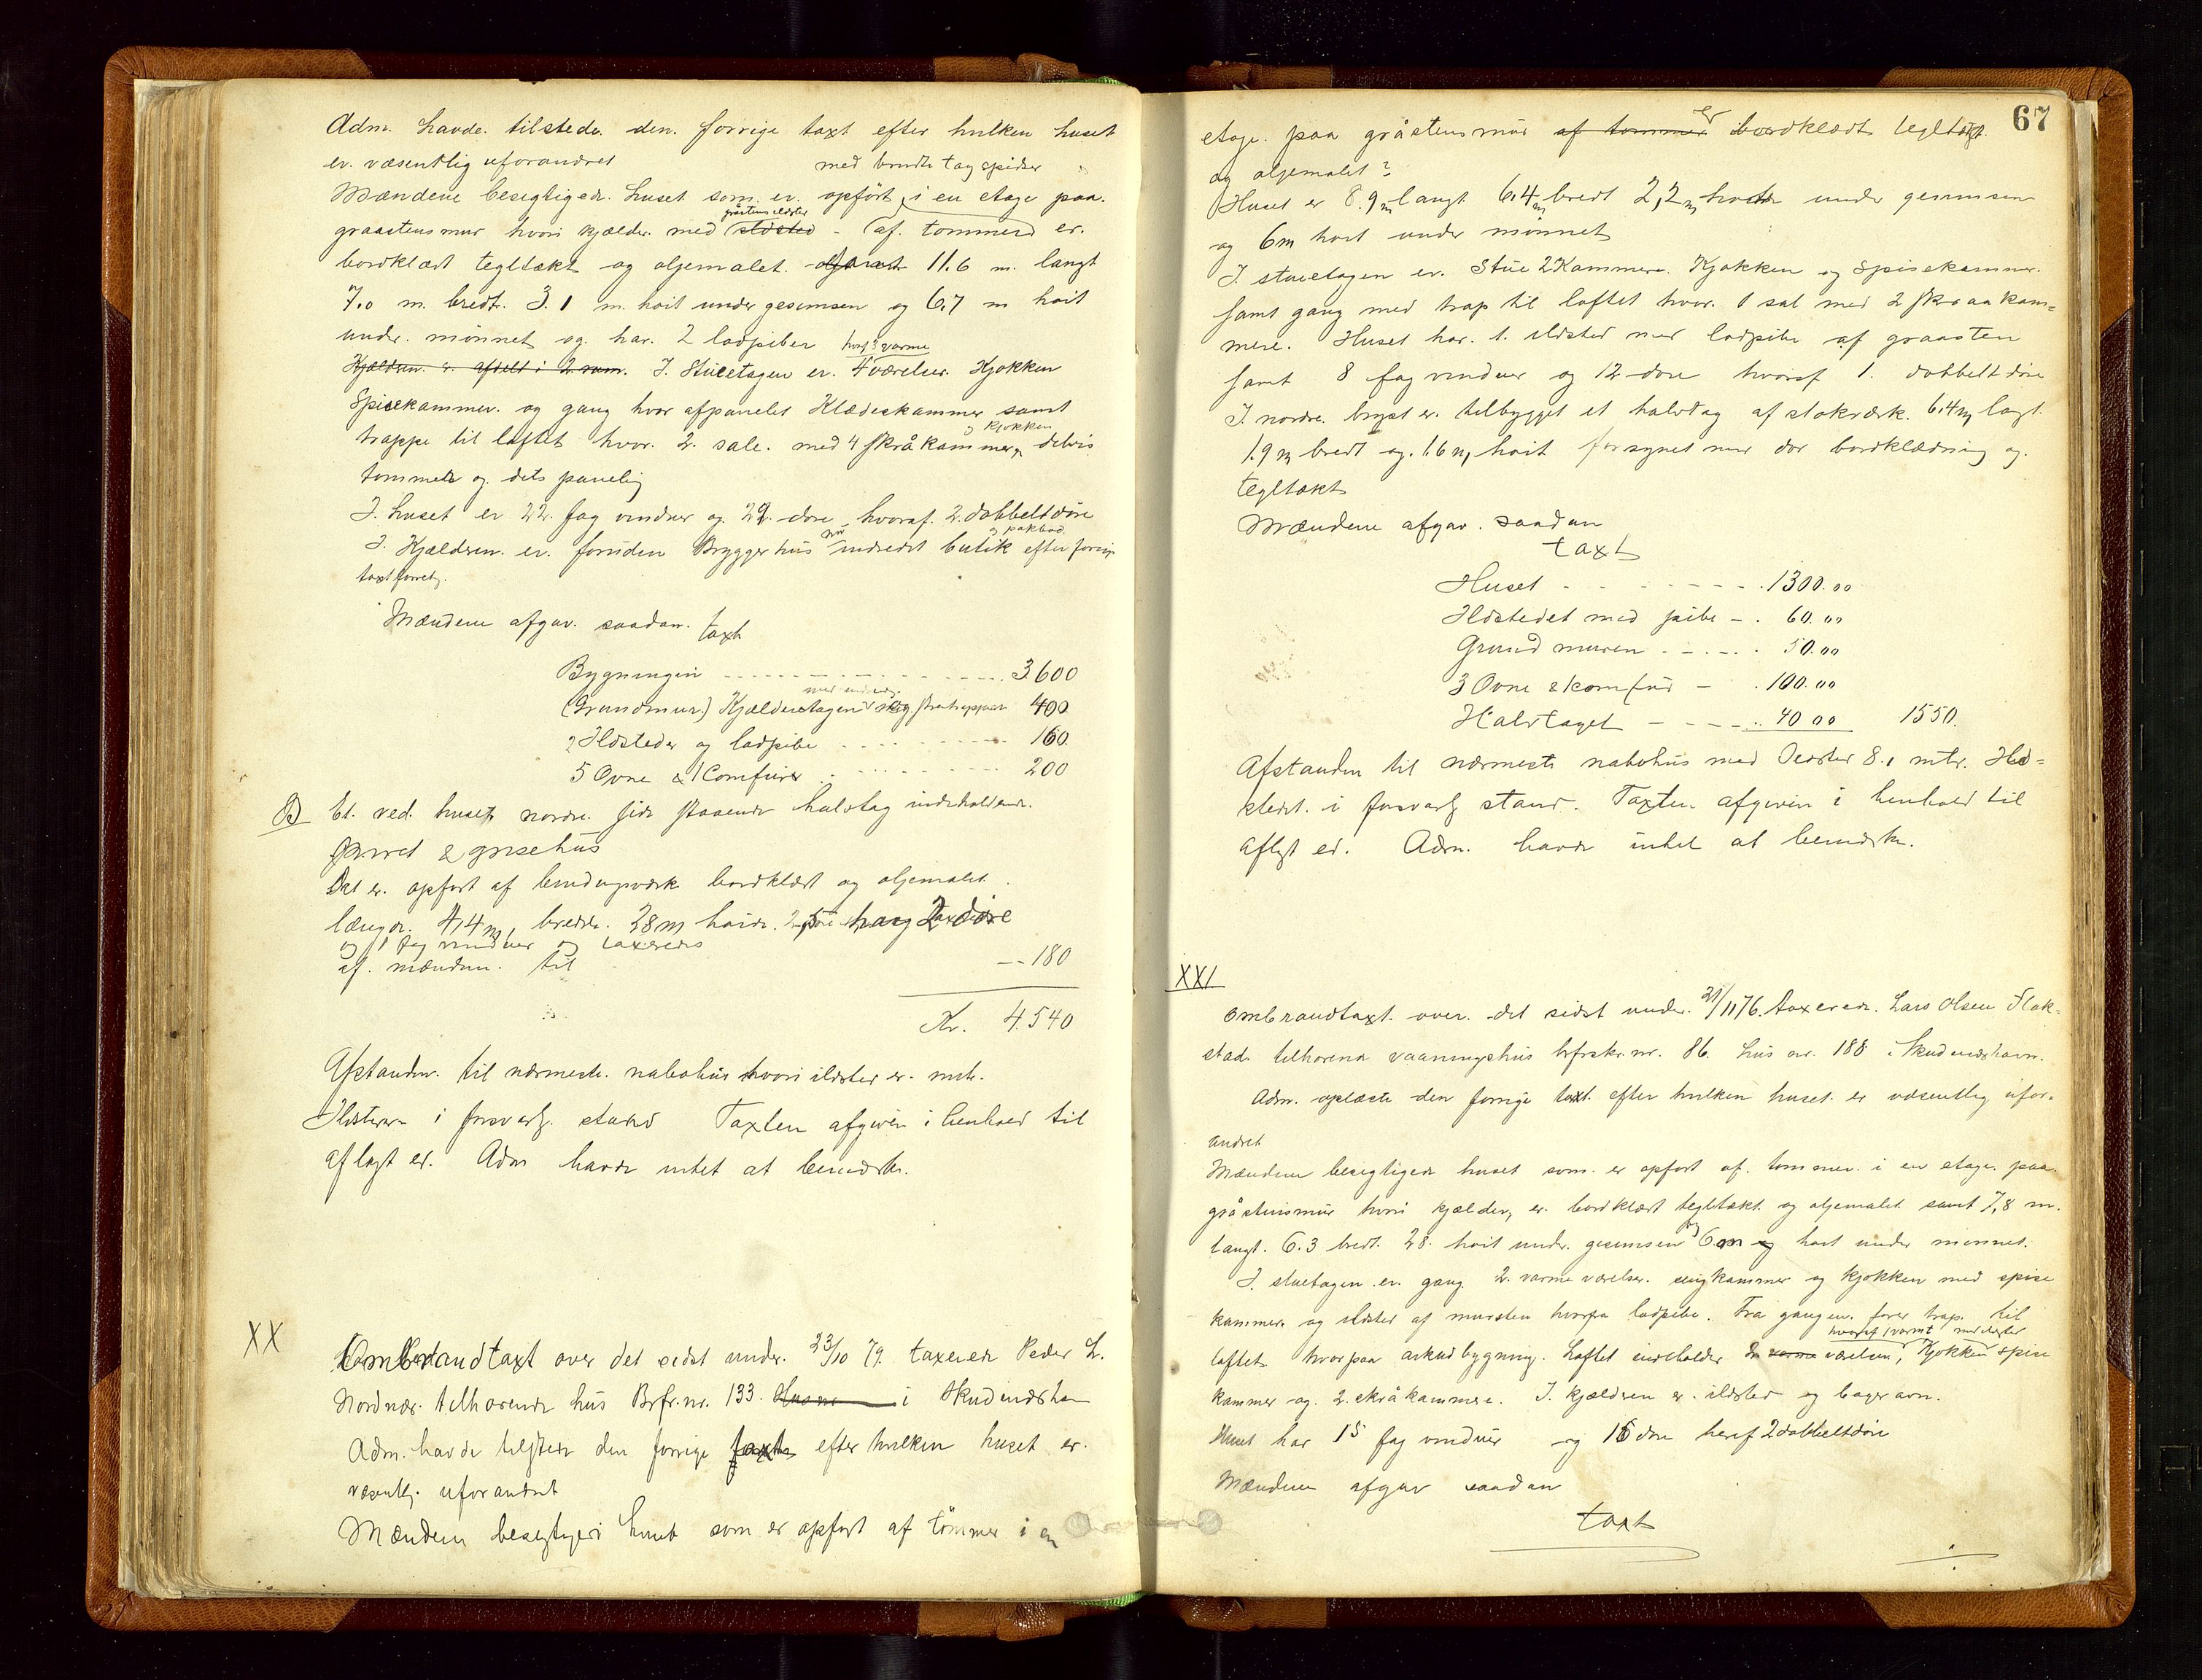 Adm. havde tilstede den forrige taxt efter hvilken huset
er væsentlig uforandret
med brudte tagspidser
Mændene besigtigede huset som er opført i en etage paa
graastensmur hvori kjælder med ildsted - af tømmer er
gråstensildsted
bordklædt tegltækt og oljemalet 11.6 m. langt
7.0 m. bredt. 3.1 m. høit under gesimsen og 6.7 m høit
under mønnet og har 2 ladpiber
hvoraf 3 varme
Kjælderen er afdelt i 2 rum. I Stueetagen er 4 værelser Kjøkken
Spisekammer og gang hvor afpanelet Klædeskammer samt
og kjøkken
trappe til loftet hvor 2 sale med 4 skråkammer, delvis
tømmer og dels paneling
I huset er 22 fag vinduer og 29 døre hvoraf 2 dobbeltdøre
og pakbod
I Kjælderen er foruden Bryggerhus nu indredet butik efter forrige
taxtforretn.
Mændene afgav saadan taxt
Bygningen 3600
med indredn.
(Grundmur) Kjælderetagen 400
2 Ildsteder og ladpibe 160
5 Ovne & 1 Comfurer 200
B) Et ved husets nordre side staaende halvtag indeholdende
Privet & grisehus
Det er opført af bindingsværk bordklædt og oljemalet
længde 4,4 m, bredde 2,8 m høide 2,5 har 2 døre
og 1 fag vinduer og taxeredes
af mændene til 180
Kr. 4540
Afstanden til nærmeste nabohus hvori ildsted er mtr.
Ildstederne i forsvarlig stand Taxten afgiven i henhold til
aflagt ed. Adm havde intet at bemærke.
XX
Ombrandtaxt over det sidst under 23/10 79 taxerede Peder L.
Nordnæs tilhørende hus Brfr.nr. 133. Hus no i Skudeneshavn
Adm. havde tilstede den forrige taxt efter hvilken huset er
væsentlig uforandret
Mændene besigtigede huset som er opført af tømmer i en
67
etage paa gråstensmur af tømmer er bordklædt tegltækt
og oljemalet
Huset er 8.9 m langt 6.4 m bredt 2,2 m høit under gesimsen
og 6 m høit under mønnet
I stueetagen er Stue 2 Kammere Kjøkken og Spisekammer
samt gang med trap til loftet hvor 1 sal med 2 skraakam=
mere. Huset har 1 ildsted med ladpibe af graasten
samt 8 fag vinduer og 12 døre hvoraf 1 dobbelt dør
I nordre bryst er tilbygget et halvtag af stokværk 6.4 m langt
1.9 m bredt og 1.6 m høit forsynet med dør bordklædning og
tegltækt
Mændene afgav saadan
taxt
Huset 1300.00
Ildstedet med pibe 60.00
Grundmuren 50.00
3 Ovne & komfur 100.00
Halvtaget 40 00 1550.
Afstanden til nærmeste nabohus med Ildsted 8.1 mtr. Ild=
stedet i forsvarlig stand. Taxten afgiven i henhold til
aflagt ed. Adm. havde intet at bemærke.
XXI
Ombrandtaxt over det sidst under 21/11 76 taxerede Lars Olsen Flak-
stad tilhørende vaaningshus brfrskr.nr. 86 hus nr. 188 i Skudeneshavn.
Adm. oplæste den forrige taxt efter hvilken huset er væsentlig ufor-
andret
Mændene besigtigede huset som er opført af tømmer i en etage paa
gråstensmur hvori kjælder, er bordklædt tegltækt og oljemalet samt 7,8 m.
langt. 6.3 bredt. 2.8 høit under gesimsen og 6 m høit under mønnet.
I stueetagen er gang 2 varme værelser sengkammer og kjøkken med spise
kammer og ildsted af mursten hvorfra ladpibe. Fra gangen fører trap til
hvoraf 1 varmt med ildsted
loftet hvorpaa arkudbygning. Loftet indeholder 2 varme værelser, Kjøkken spise
kammer og 2 skråkammere. I kjælderen er ildsted og bagerovn.
Huset har 15 fag vinduer og 16 døre heraf 2 dobbeltdøre
Mændene afgav saadan
taxt